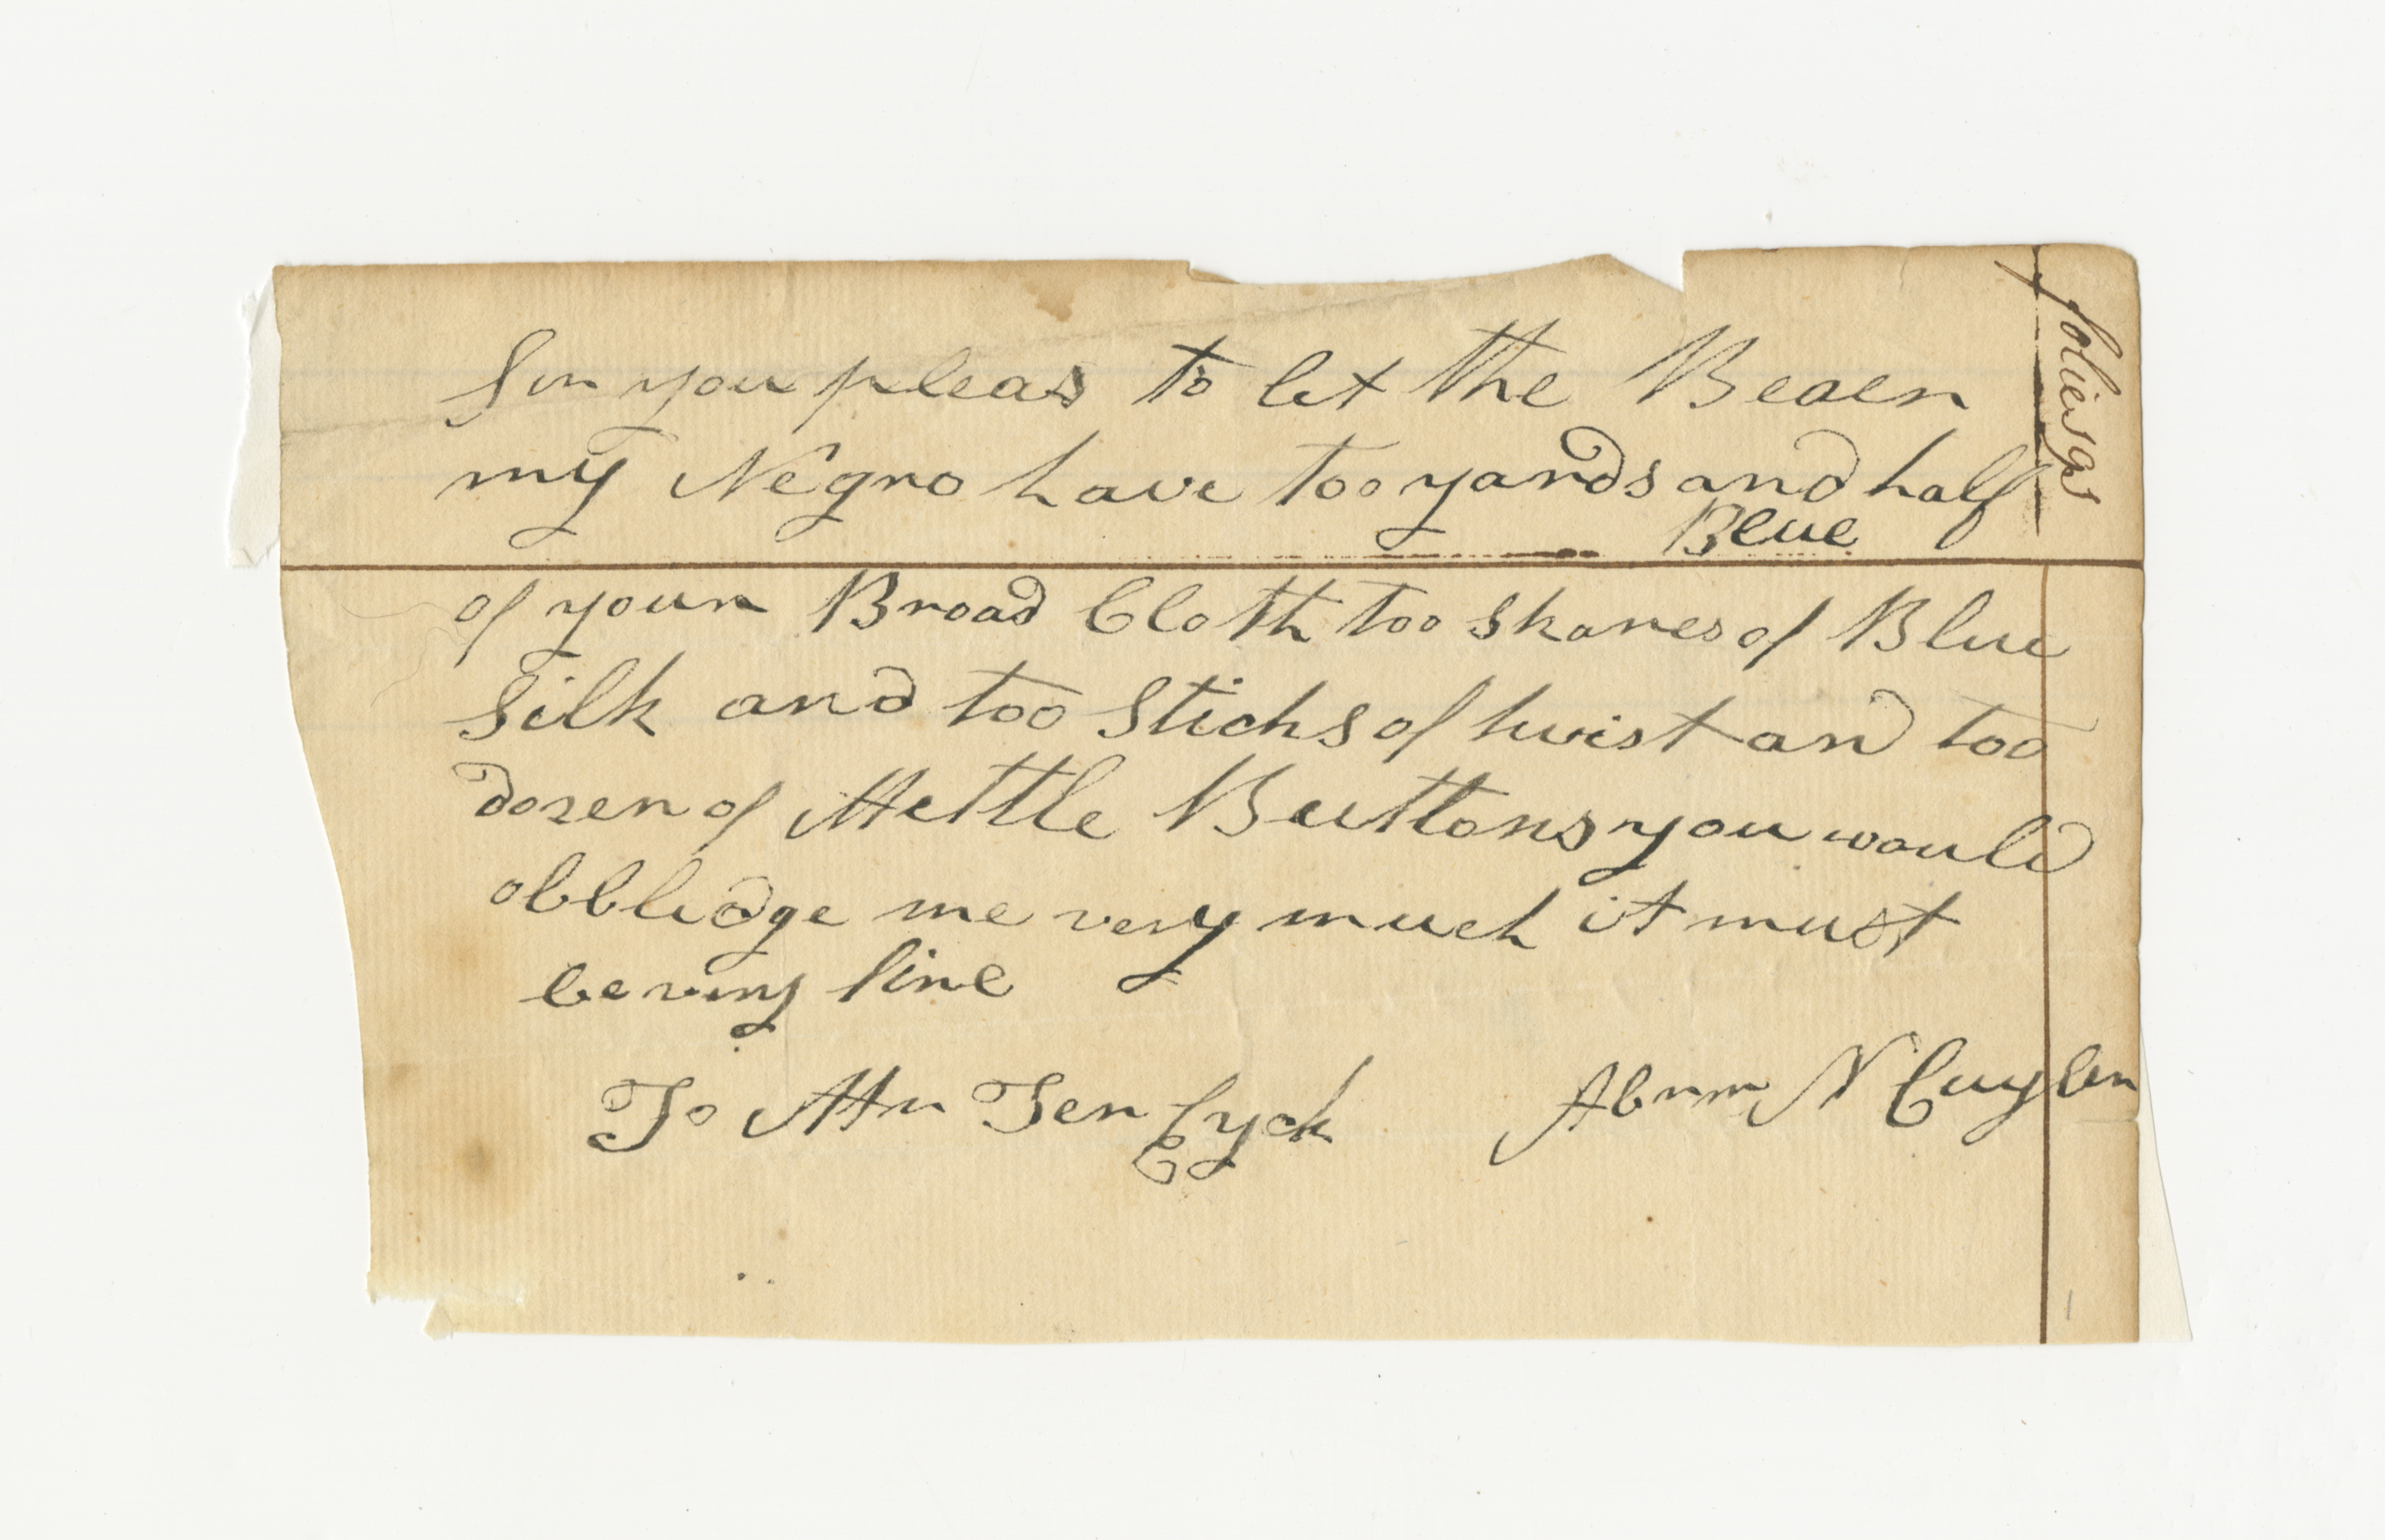 Sir you pleas to let the Bearer
my Negro have too yards and half
Blue
of your Broad Cloth too skanes of Blue
Silk and too Sticks of twist and too
dozen of Mettle Buttons you would
obblidge me very much it must
be very fine
To Mr Ten Eyck Abrm N Cuyler